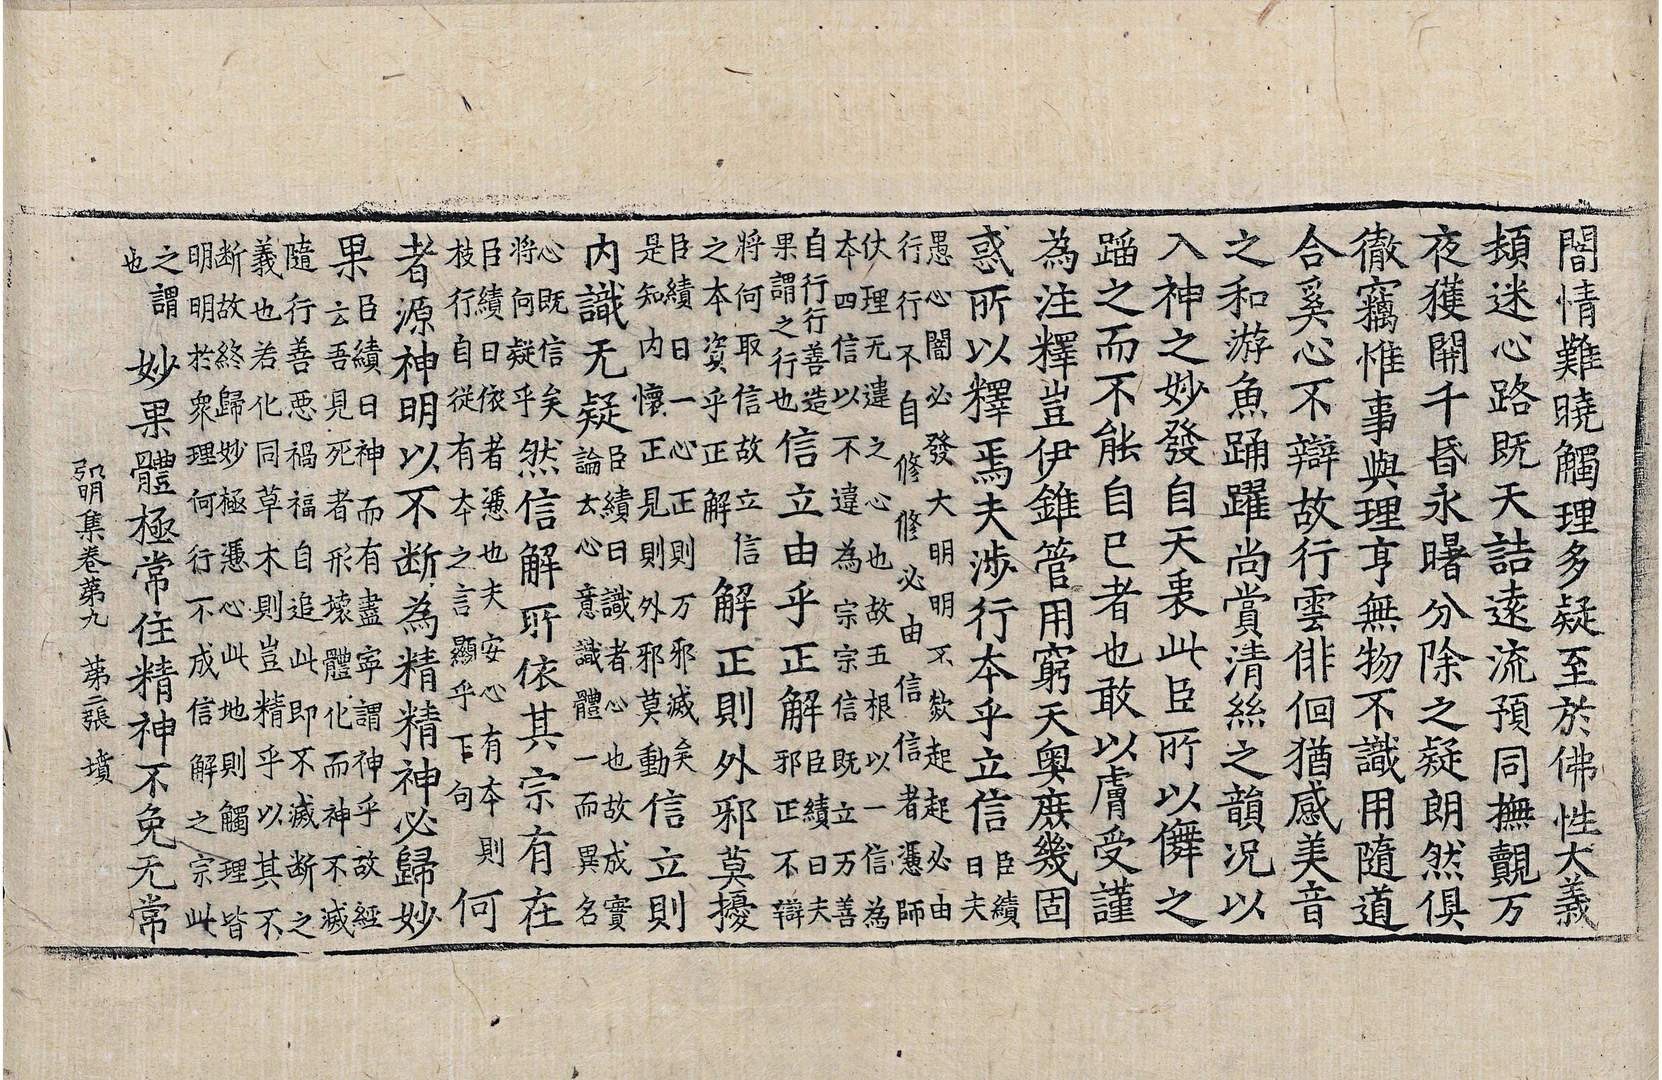 闇情難曉觸理多疑至於佛性大義
頓迷心路既天誥遠流預同撫覿万
夜獲開千昏永曙分除之疑朗然俱
徹竊惟事與理亨無物不識用隨道
合奚心不辯故行雲俳佪猶感美音
之和游魚踊躍尚賞清絲之韻况以
入神之妙發自天衷此臣所以儛之
蹈之而不能自已者也敢以膚受謹
為注釋豈伊錐管用窮天奧庶幾固
惑所以釋焉夫涉行本乎立信臣績曰夫
愚心闇必發大明明不欻起起必由
行行不自修修必由信信者憑師
仗理无違之心也故五根以一信為
本四信以不違為宗宗信既立万善
自行行善造果謂之行也信立由乎正解臣績曰夫邪正不辯
將何取信故立信之本資乎正解解正則外邪莫擾
臣績曰一心正則万邪滅矣是知内懷正見則外邪莫動信立則
内識无疑臣績曰識者心也故成實論云心意識體一而異名
心既信矣將何疑乎然信解所依其宗有在
臣績曰依者憑也夫安心有本則枝行自從有本之言顯乎下句何
者源神明以不断為精精神必歸妙
果臣績曰神而有盡寧謂神乎故經云吾見死者形壞體化而神不滅
隨行善惡禍福自追此即不滅断之
義也若化同草木則豈精乎以其不
断故終歸妙極憑心此地則觸理皆
明明於衆理何行不成信解之宗此
之謂也妙果體極常住精神不免无常
弘明集卷第九 第二張 墳